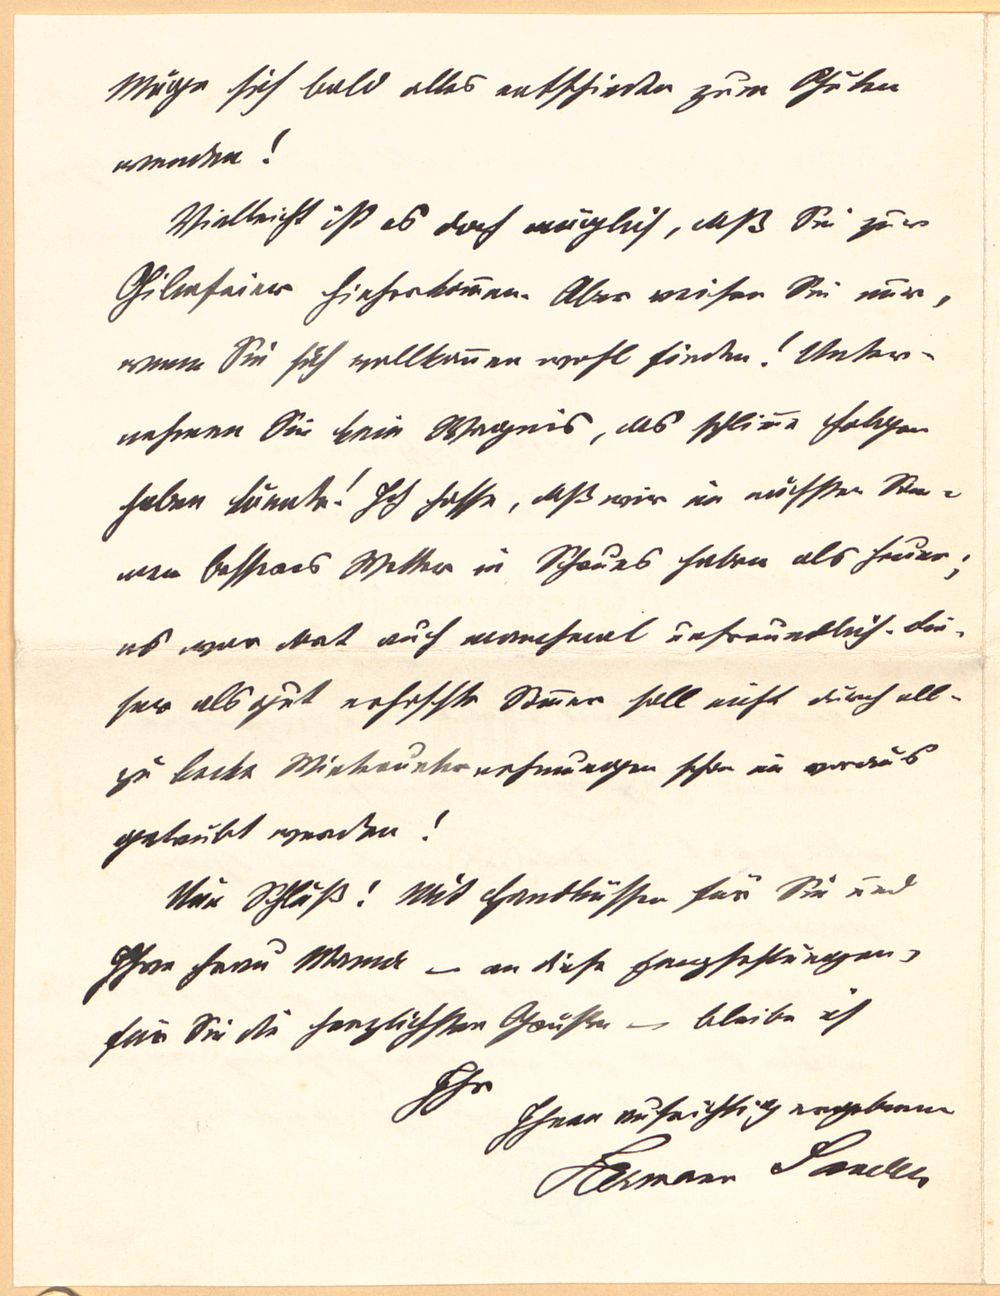 Möge sich bald alles entschieden zum Guten
wenden!
Vielleicht ist es doch möglich, daß Sie zur
Gilmfeier hieherkommen. Aber reisen Sie nur,
wenn Sie sich vollkommen wohl finden! Unter-
nehmen Sie kein Wagnis, das schlimme Folgen
haben könnte! Ich hoffe, daß wir im nächsten Som-
mer besseres Wetter in Schruns haben als heuer;
es war dort auch manchmal unfreundlich. Die-
ser als gut erhoffte Sommer soll nicht durch all-
zu kecke Winterunternehmungen schon im voraus
getrübt werden!
Nun Schluß! Mit Handküssen für Sie und
Ihre Frau Mama — an diese Empfehlungen,
für Sie die herzlichsten Grüße — bleibe ich
Ihr
Ihnen aufrichtig ergebener
Hermann Sander